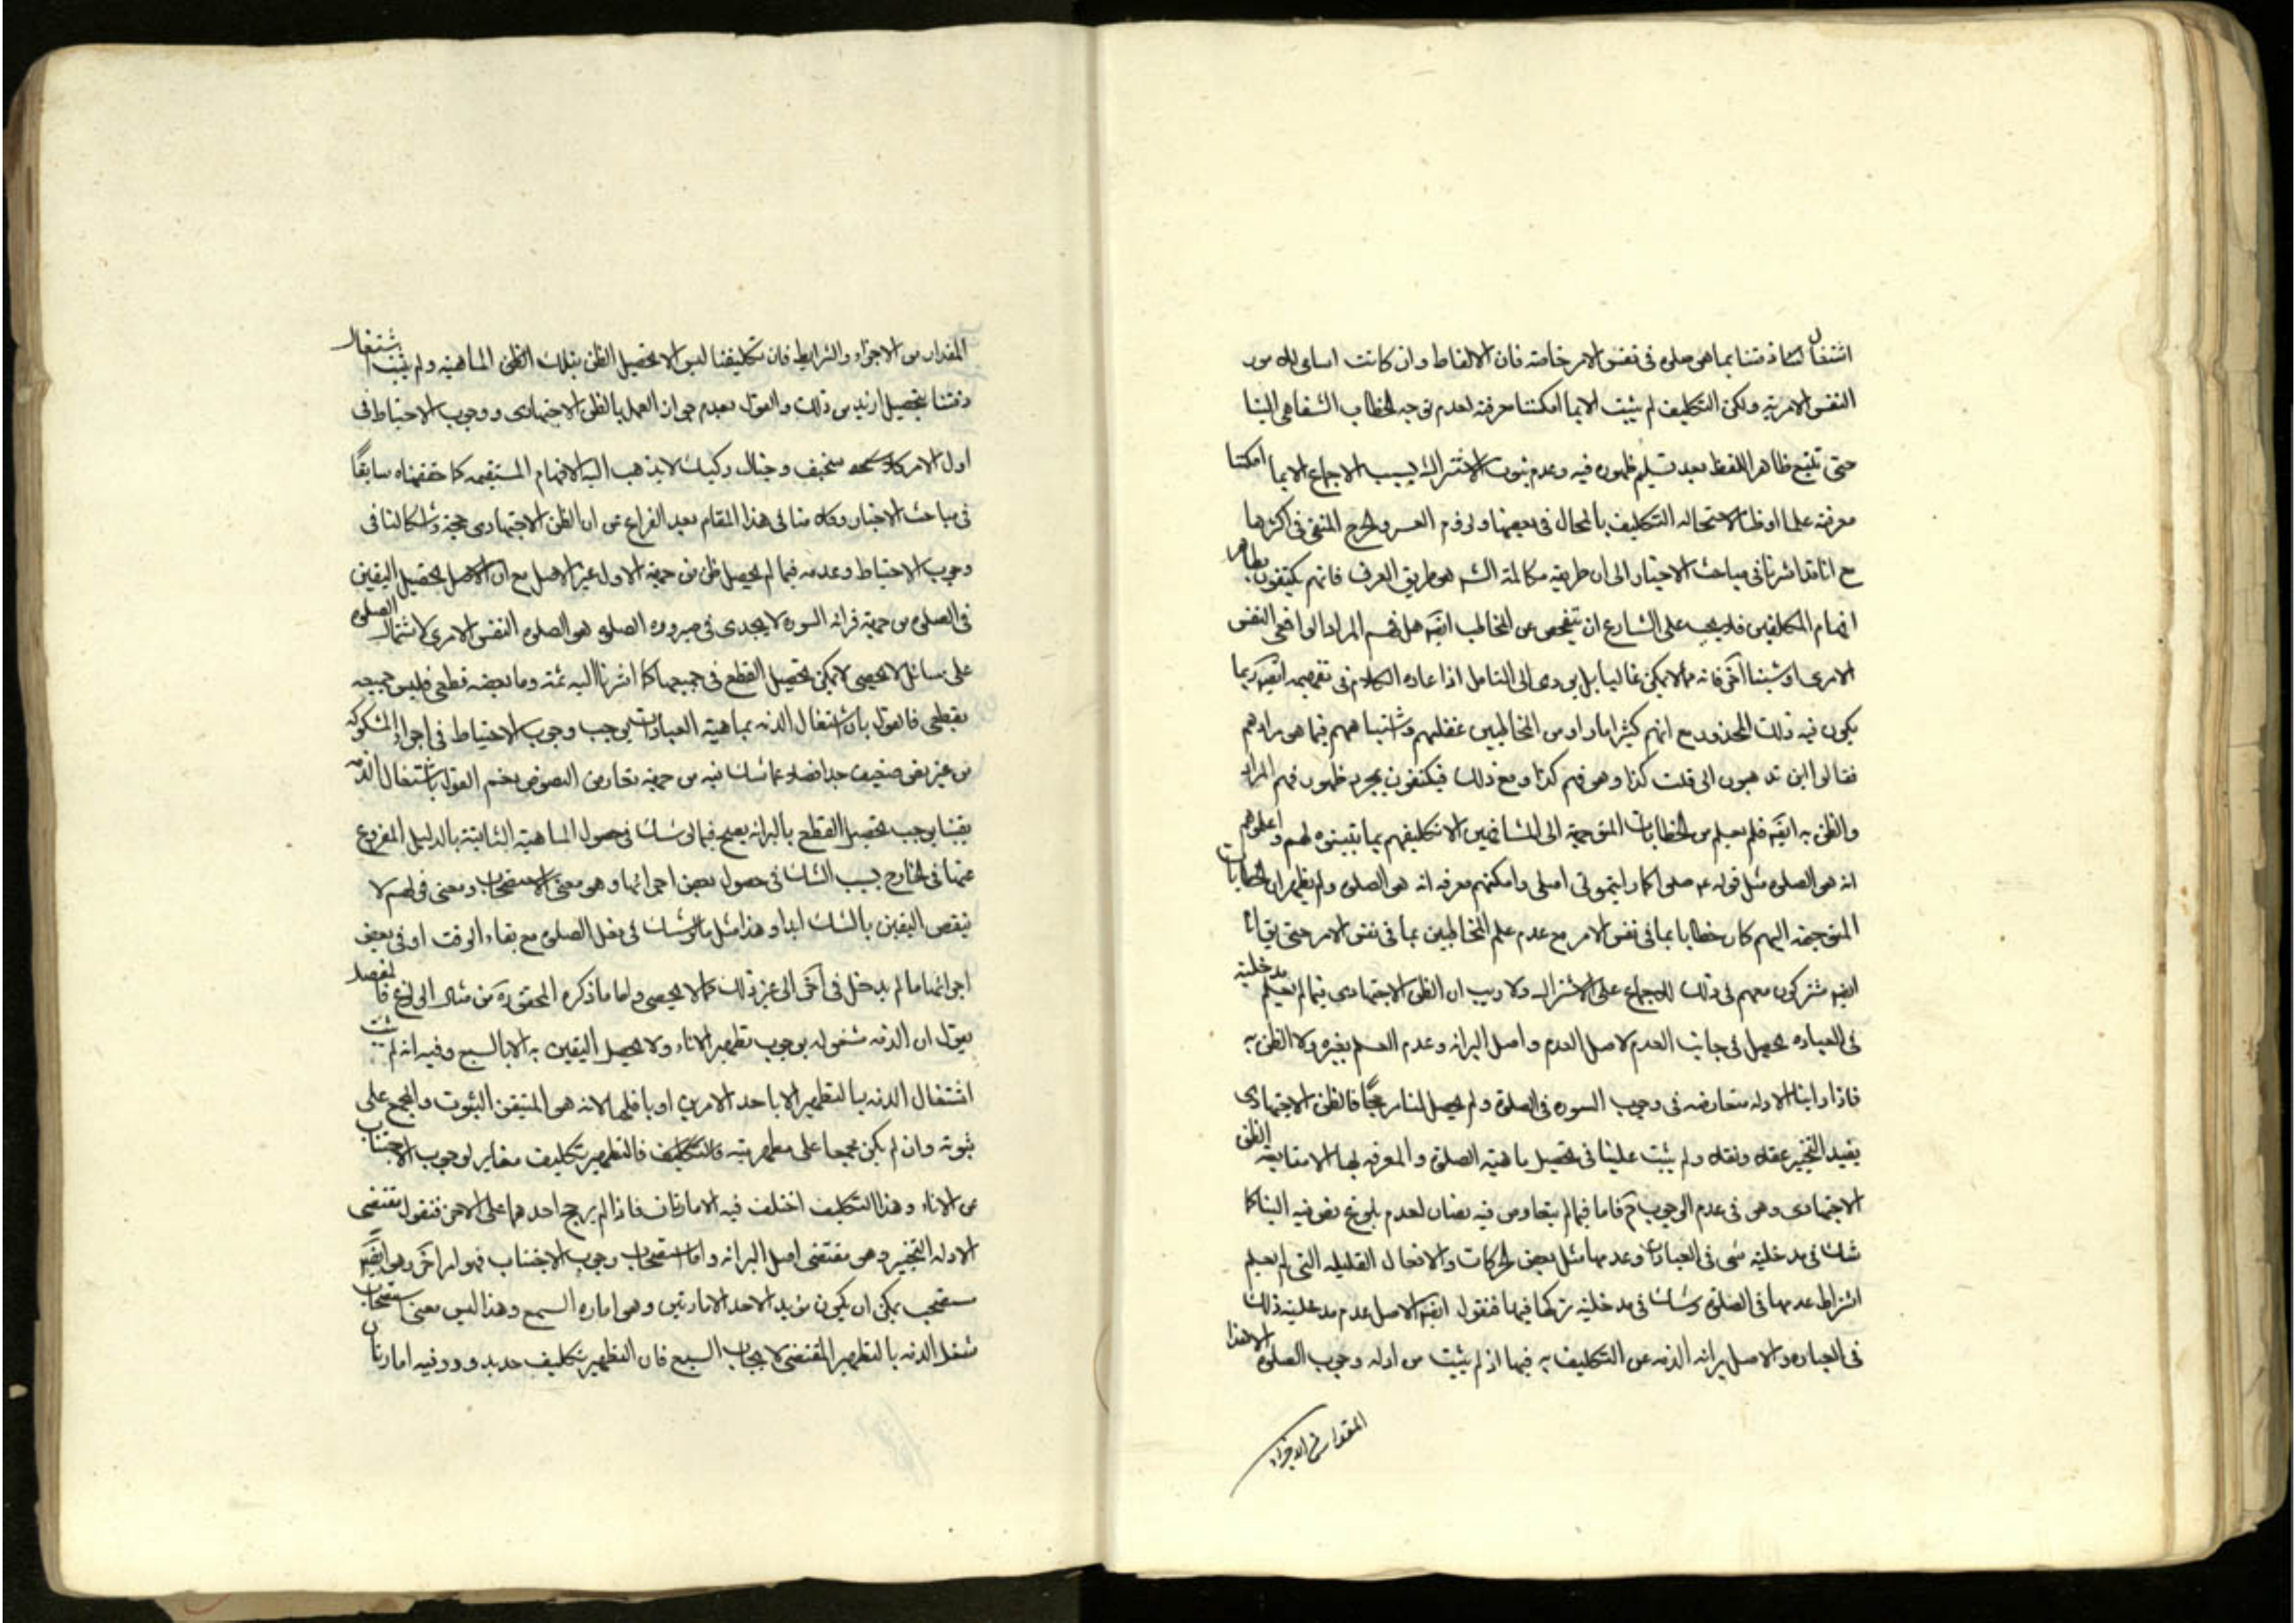 اشتغال ذمتنا بما هى صلوة فى نفس الامر خاصة فان الالفاظ وان كانت اسامى للامور
النفس الامرية ولكن التكليف لم يثبت الا بما امكننا معرفته لعدم توجه الخطاب الشفاهى الينا
حتى نتبع ظاهر اللفظ بعد تسليم ظهوره فيه وعدم ثبوت الاشتراك بسبب الاجماع الا بما امكننا
معرفته علما او ظنا لاستحالة التكليف بالمحال فى بعضها ولزوم العسر والحرج المنفى فى اكثرها
مع انا قد اشرنا فى مباحث الاخبار الى ان طريقة مكالمة الشه هو طريق العرف فانهم يكتفون بظاهر
افهام المكلفين فلا يجب على الشارع ان يتفحص عن المخاطب ايضه هل فهم المراد الواقعى النفس
الامرى او شيئا آخر فانه مما لا يمكن غالبا بل يودى الى التسلسل اذا عاده الكلام فى تفهيمه ايضه ربما
يكون فيه ذلك المحذور مع انهم كثيرا ما راوا من المخاطبين غفلتهم واشتباههم فيما هو مرادهم
فقالوا اين تذهبون انى قلت كذا وهو فهم كذا ومع ذلك فيكتفون بمجرد ظهور فهم المراد
والظن به ايضه فلم يعلم من الخطابات المتوجهة الى المشافهين الا تكليفهم بما يتبينوه لهم واعلموهم
انه هو الصلوة مثل قوله عم صلوا كما رايتمونى اصلى وامكنهم معرفة انه هو الصلوة ولم يظهر ان الخطابات
المتوجهة اليهم كان خطابا بما فى نفس الامر مع عدم علم المخاطبين بما فى نفس الامر حتى يق انا
ايضه مشتركون معهم فى ذلك للاجماع على الاشتراك ولا ريب ان الظن الاجتهادى فيما لم نعلم مدخليته
فى العبادة يحصل فى جانب العدم لاصل العدم واصل البرائة وعدم العلم بغيره ولا الظن به
فاذا راينا الادلة متعارضة فى وجوب السورة فى الصلوة ولم يحصل لنا مرجحا فالظن الاجتهادى
يفيد التخيير عقلا ونقلا ولم يثبت علينا فى تحصيل ماهية الصلوة والمعرفة بها الا متابعة الظن
الاجتهادى وهو فى عدم الوجوب ح فاما فيما لم يتعارض فيه نصان لعدم بلوغ نص فيه الينا كما
شك فى مدخلية شى فى العبادات وعدمها مثل بعض الحركات والافعال القليلة التى لم يعلم
اشتراط عدمها فى الصلوة وشك فى مدخلية تركها فيها فنقول ايضه الاصل عدم مدخلية ذلك
فى العبادة والاصل برائة الذمة عن التكليف به فيها اذ لم يثبت من ادلة وجوب الصلوة الا هذا
المقدار من الاجزاء
المقدار من الاجزاء والشرايط فان تكليفنا ليس الا تحصيل الظن بتلك الماهية ولم يثبت اشتغال
ذمتنا بتحصيل ازيد من ذلك والقول بعدم جواز العمل بالظن الاجتهادى ووجوب الاحتياط فى
اول الامر كلام سخيف وخيال ركيك لا يذهب اليه الافهام المستقيمة كما حققناه سابقاً
فى مباحث الاخبار وكلامنا فى هذا المقام بعد الفراغ عن ان الظن الاجتهادى حجة وشكنا فى
وجوب الاحتياط وعدمه فيما لم يحصل ظن من جهة الادلة غير الاصل مع ان الاصل تحصيل اليقين
فى الصلوة من جهة قرائة السورة لا يجدى فى صيرورة الصلوة هو الصلوة النفس الامرى لاشتمال الصلوة
على مسائل لا تحصى لا يمكن تحصيل القطع فى جميعها كما اشرنا اليه ثمة وما بعضه قطعى فليس جميعه
بقطعى فالقول بان اشتغال الذمة بماهية العبادات يوجب وجوب الاحتياط فى اجزاء المشكوكة
من غير نص ضعيف جدا فضلا عما شك فيه من جهة تعارض النصوص نعم القول باشتغال الذمة
يقينا يوجب تحصيل القطع بالبرائة يصح فيما لو شك فى حصول الماهية الثابتة بالدليل المفروغ
عنها فى الخارج بسبب الشك فى حصول بعض اجزائها وهو معنى الاستصحاب ومعنى قولهم لا
ينقض اليقين بالشك ابدا وهذا مثل ما لو شك فى فعل الصلوة مع بقاء الوقت او فى بعض
اجزائها ما لم يدخل فى آخر الى غير ذلك مما لا يحصى واما ما ذكره المحقق ره من مثال الولوغ فالمفصل
يقول ان الذمة مشغولة بوجوب تطهير الاناء ولا يحصل اليقين به الا بالسبع وفيه انه لم يثبت
اشتغال الذمة بالتطهير الا باحد الامرين او باقلهما لانه هو المتيقن الثبوت والمجمع على
ثبوته وان لم يكن مجمعا على مطهريته فالتطهير تكليف مغاير لوجوب الاجتناب
عن الاناء وهذا التكليف اختلف فيه الامارتان فاذا لم يرجح احدهما على الاخر فنقول مقتضى
الادلة التخيير وهو مقتضى اصل البرائة واما استصحاب وجوب الاجتناب فهو امر آخر وهو ايضه
مستصحب يمكن ان يكون مؤيد الاحد الامارتين وهو امارة السبع وهذا ليس معنى استصحاب
شغل الذمة بالتطهير المقتضى لايجاب السبع فان التطهير تكليف جديد وورد فيه امارتان